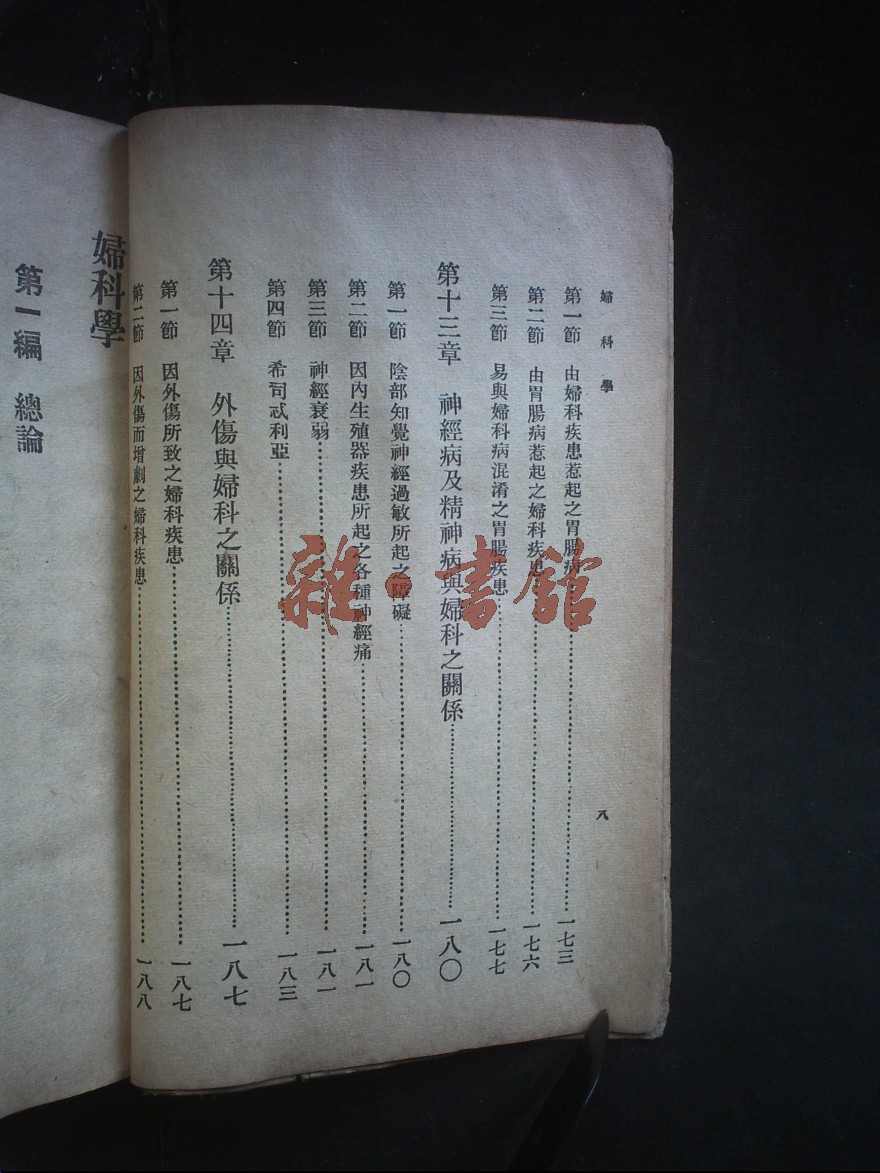 婦科學
八
第一節 由婦科疾患惹起之胃腸病……一七三
第二節 由胃腸病惹起之婦科疾患……一七六
第三節 易與婦科病混淆之胃腸疾患……一七七
第十三章 神經病及精神病與婦科之關係……一八〇
第一節 陰部知覺神經過敏所起之障礙……一八〇
第二節 因內生殖器疾患所起之各種神經痛……一八一
第三節 神經衰弱……一八一
第四節 希司忒利亞……一八三
第十四章 外傷與婦科之關係……一八七
第一節 因外傷所致之婦科疾患……一八七
第二節 因外傷而增劇之婦科疾患……一八八
婦科學
第一編 總論
雜·書館